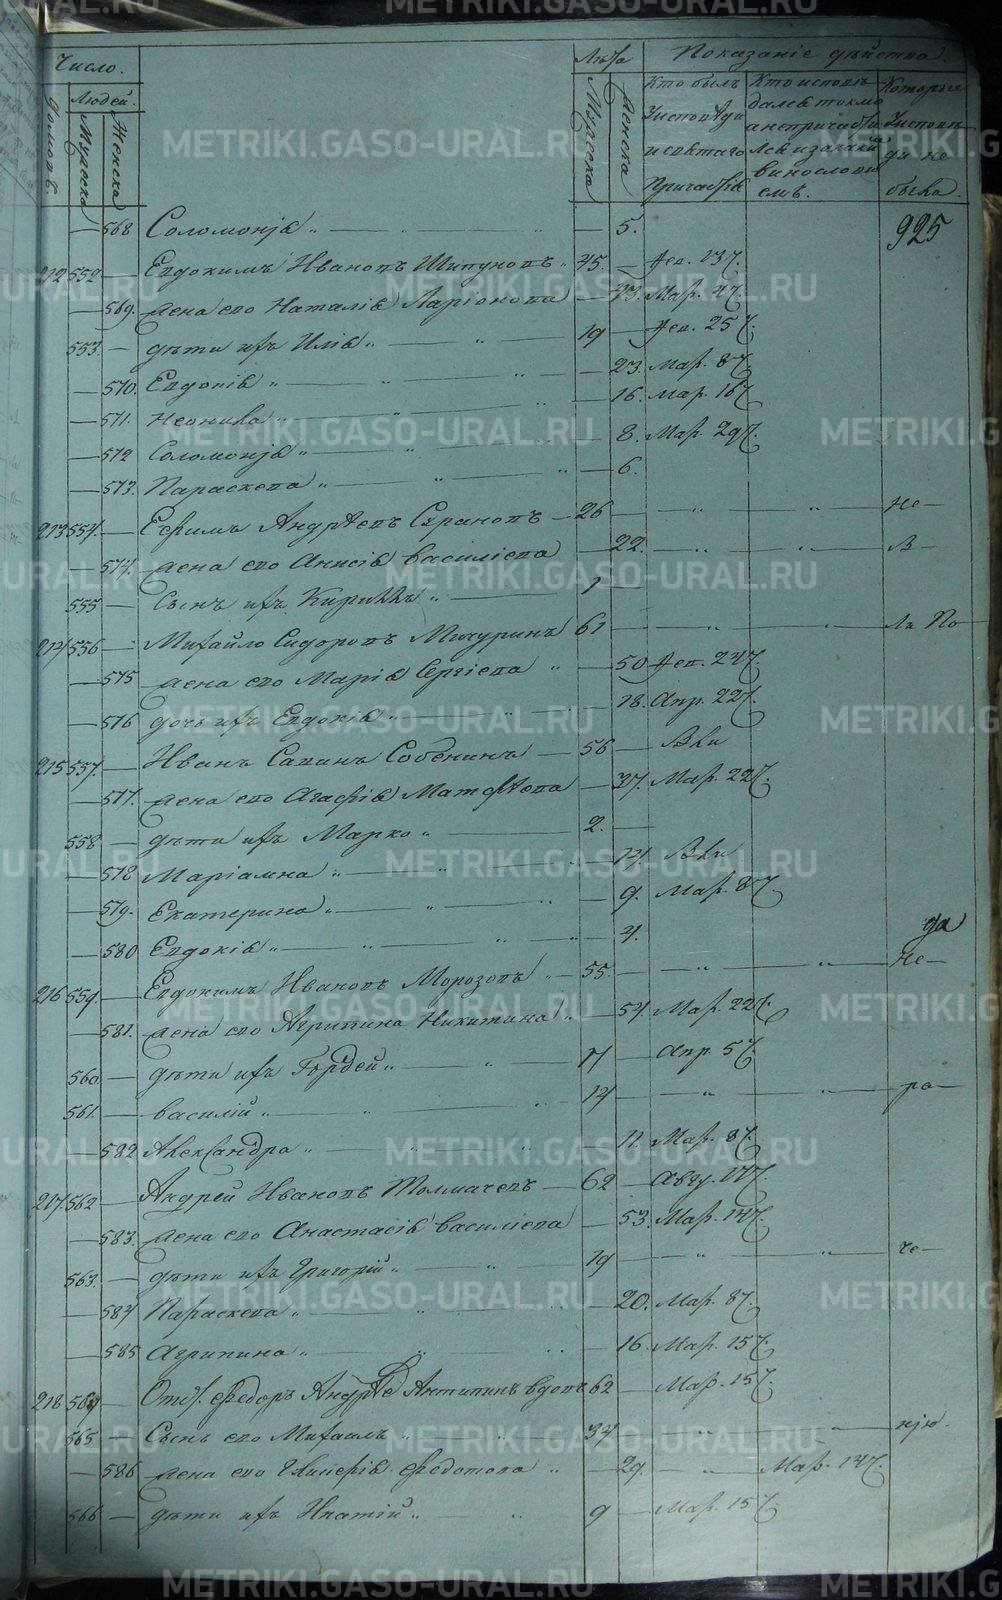 Число.
Лѣта
Показаніе дѣйства.
Домовъ.
Людей.
Мужеска
Женска
Мужеска
Женска
Кто былъ у исповѣди и святаго причастія
Кто исповѣдался токмо а не причастился и за какимъ винословіемъ.
Которые у исповѣди не были.
925
— 568 Соломонія „ — 5.
212 552 — Евдокимъ Ивановъ Шипуновъ „ 45. — Фев. 13 7.
— 569. жена его Наталія Ларіонова — 43. Мар. 4 7.
553. — дѣти ихъ Илія „ — „ 19 — Фев. 25 7.
— 570. Евдокія „ — „ — 23. Мар. 8 7.
— 571. Неонила „ — „ — 16. Мар. 16 7.
— 572 Соломонія „ — 8. Мар. 29 7.
— 573. Параскева „ — „ — 6.
213 554. — Ефимъ Андрѣевъ Страновъ — 26 — „ — „ — Не —
— 574. жена его Анисія Василіева — 22. — „ — „ — в —
555 — Сынъ ихъ Кириллъ „ — 1 —
214 556 — Михайло Сидоровъ Мичуринъ 61 — „ — „ — лъ По —
— 575 жена его Марія Сергіева „ — 50 Фев. 24 7.
— 576 дочь ихъ Евдокія „ — 18. Апр. 22 7.
215 557. — Иванъ Савинъ Собенинъ — 56 — Вли
— 577. жена его Агафія Матфѣева — 37. Мар. 22 7.
558 — дѣти ихъ Марко „ — 2. —
— 578 Маріамна „ — „ — 14. Вли
— 579. Екатерина „ — „ — 9. Мар. 8 7.
— 580 Евдокія „ — „ — 4.
да
216 559. — Евдокимъ Ивановъ Морозовъ „ — 55. — „ — „ — Не —
— 581. жена его Агрипина Никитина „ — 54 Мар. 22 7.
560. — дѣти ихъ Гордей „ — „ — 17 — Апр. 5 7.
561. — Василій „ — „ — 14 — „ — „ — ра —
— 582 Александра „ — „ — 11. Мар. 8 7.
217. 562 — Андрей Ивановъ Толмачевъ — 62 — Авгу. 14 7.
— 583. жена его Анастасія Василіева — 53. Мар. 14 7.
563. — дѣти ихъ Григорій „ — „ — 19 — „ — „ — че —
— 584 Параскева „ — „ — 20. Мар. 8 7.
— 585 Агрипина „ — „ — 16. Мар. 15 7.
218 564 — Отс. Федоръ Андрѣев Антипинъ вдовъ 62 — Мар. 15 7.
565 — Сынъ его Михаилъ „ — „ — 34 — „ — нію.
— 586 жена его Гликерія Федотова „ — 29. — „ — Мар. 14 7.
566 — дѣти ихъ Ипатій „ — „ — 9 — Мар. 15 7.
METRIKI.GASO-URAL.RU